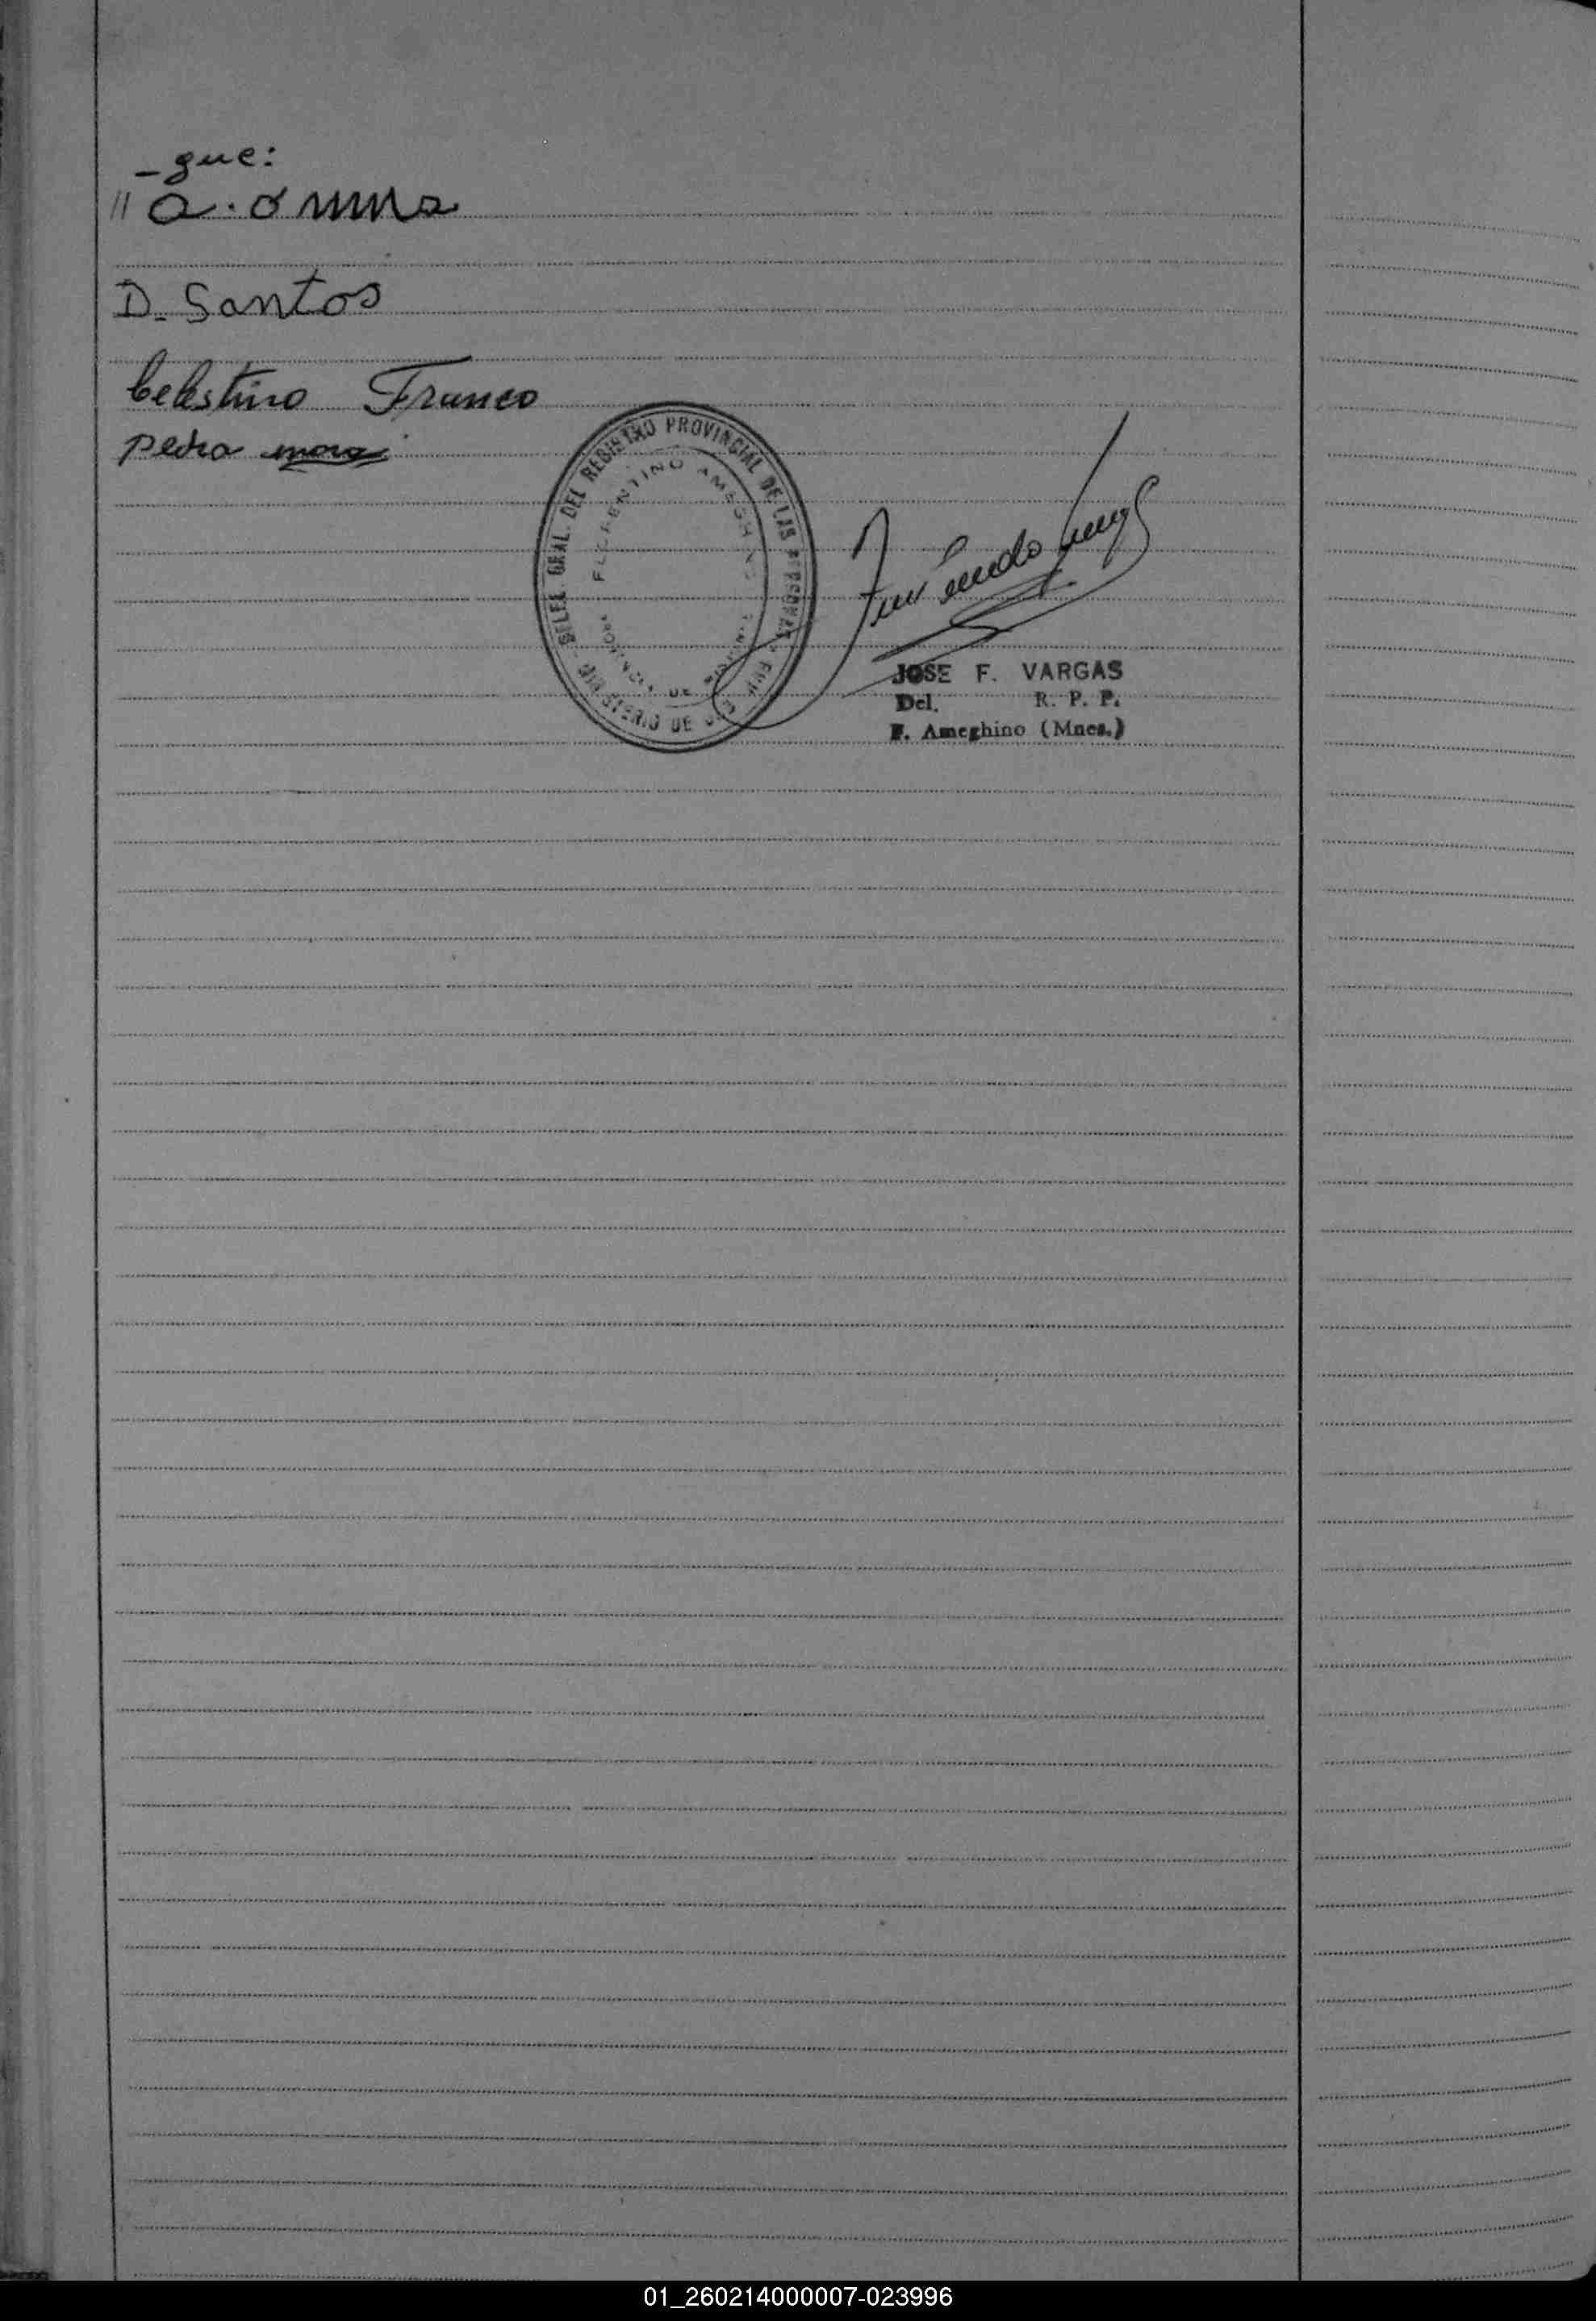 -gue:
D. Santos
Celestino Franco
Pedro mora
DELEG. GRAL. DEL REGISTRO PROVINCIAL DE LAS PERSONAS
FLORENTINO AMEGHINO
MINISTERIO DE
JOSE F. VARGAS
Del. R. P. P.
F. Ameghino (Mnes.)
01_260214000007-023996